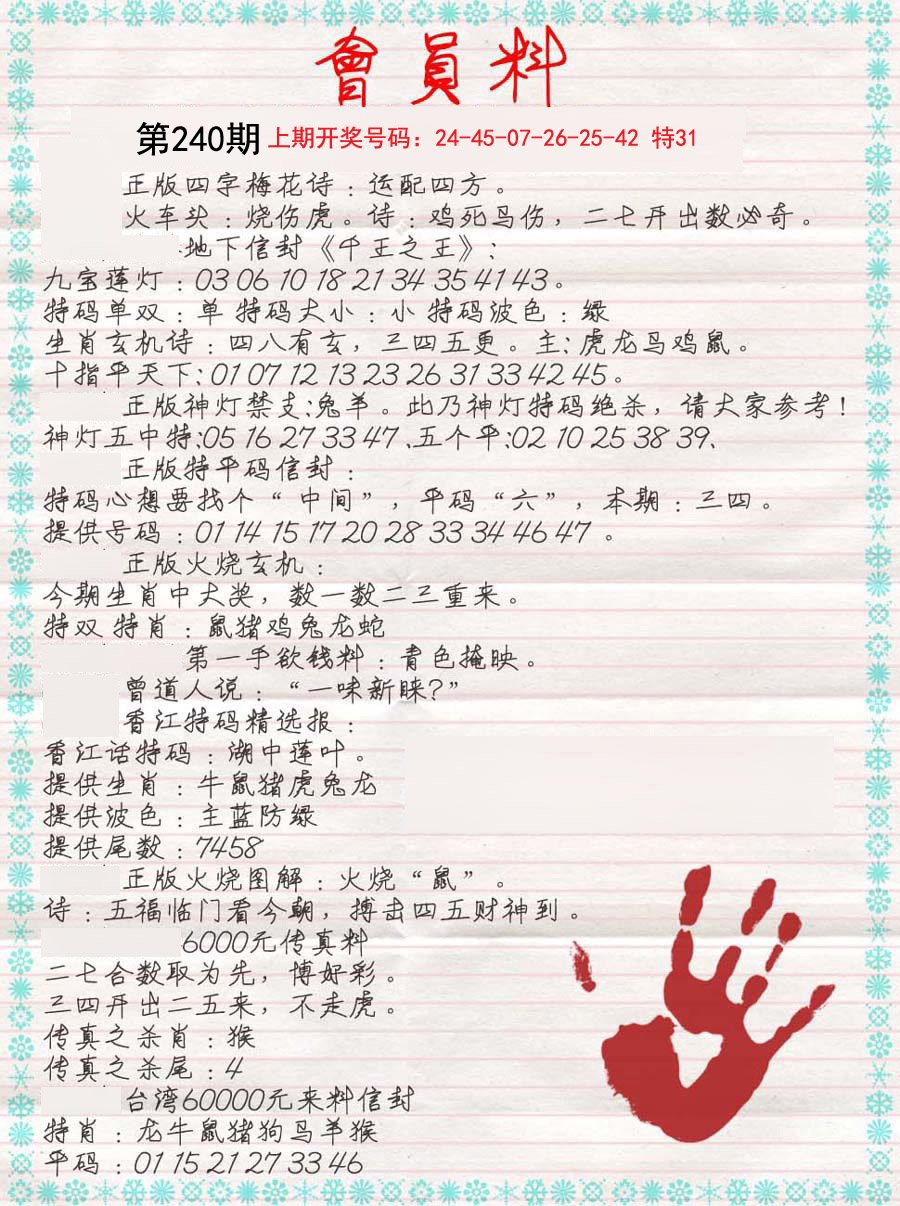 會員料
第240期 上期开奖号码：24-45-07-26-25-42 特31
正版四字梅花诗：运配四方。
火车头：烧伤虎。诗：鸡死马伤，二七开出数必奇。
地下信封《千王之王》：
九宝莲灯：03 06 10 18 21 34 35 41 43。
特码单双：单 特码大小：小 特码波色：绿
生肖玄机诗：四八有玄，三四五更。主：虎龙马鸡鼠。
十指平天下：01 07 12 13 23 26 31 33 42 45。
正版神灯禁支：兔羊。此乃神灯特码绝杀，请大家参考！
神灯五中特：05 16 27 33 47、五个平：02 10 25 38 39、
正版特平码信封：
特码心想要找个“中间”，平码“六”，本期：三四。
提供号码：01 14 15 17 20 28 33 34 46 47。
正版火烧玄机：
今期生肖中大奖，数一数二三重来。
特双 特肖：鼠猪鸡兔龙蛇
第一手欲钱料：青色掩映。
曾道人说：“一味新睐？”
香江特码精选报：
香江话特码：湖中莲叶。
提供生肖：牛鼠猪虎兔龙
提供波色：主蓝防绿
提供尾数：7458
正版火烧图解：火烧“鼠”。
诗：五福临门看今朝，搏击四五财神到。
6000元传真料
二七合数取为先，博好彩。
三四开出二五来，不走虎。
传真之杀肖：猴
传真之杀尾：4
台湾60000元来料信封
特肖：龙牛鼠猪狗马羊猴
平码：01 15 21 27 33 46